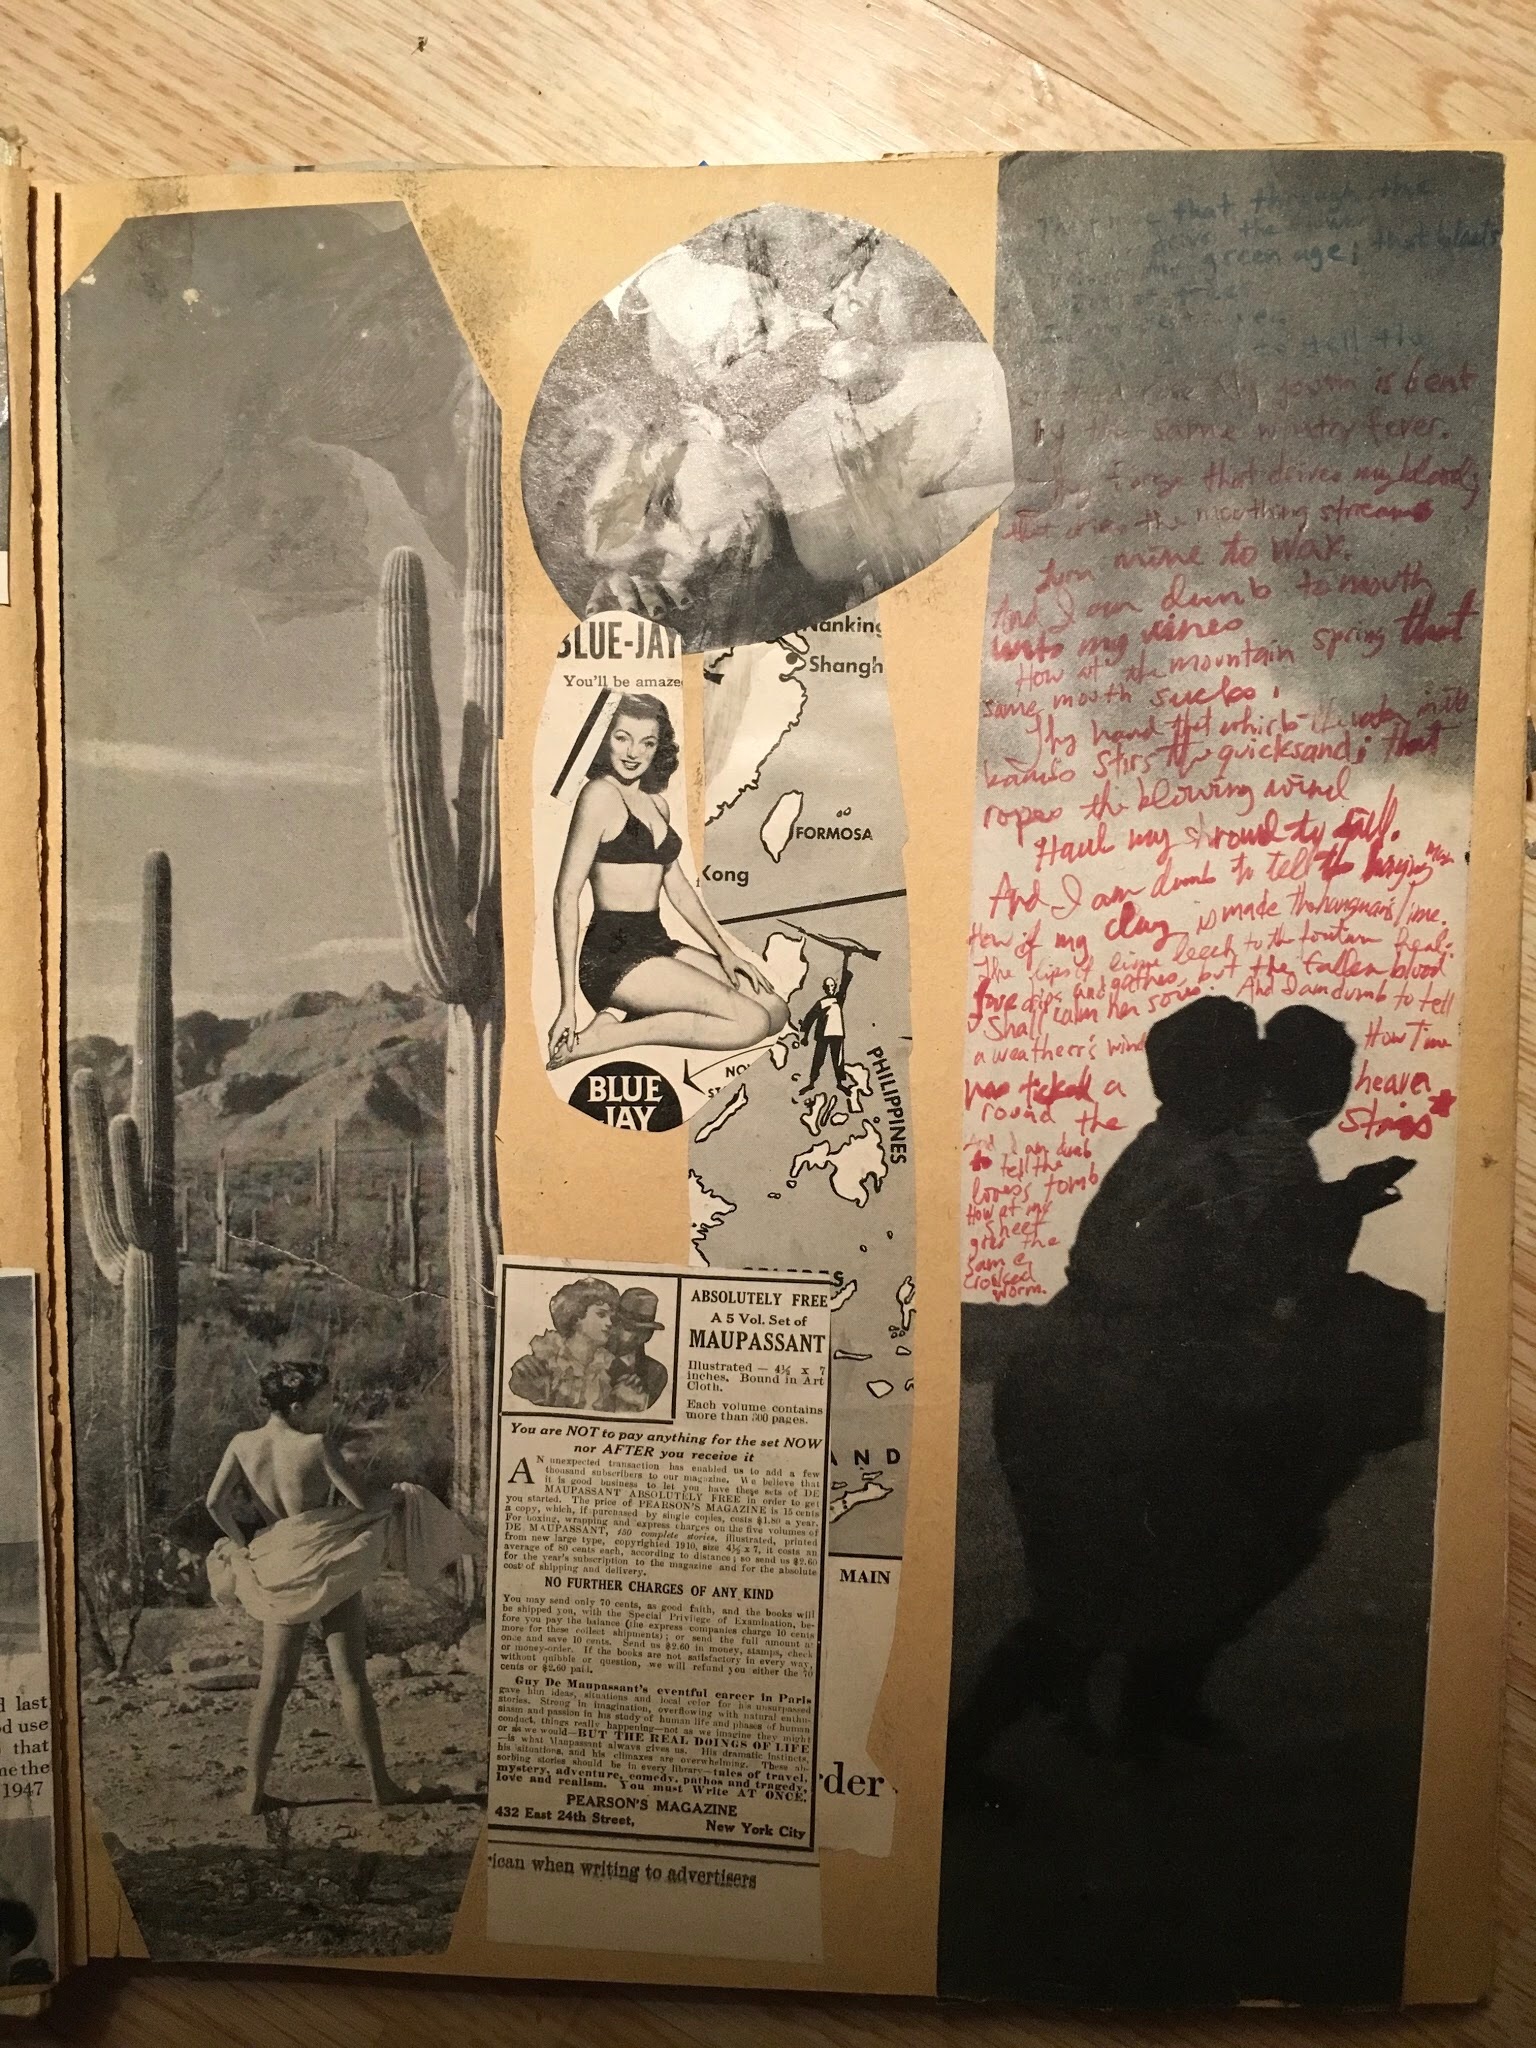 d last
od use
that
me the
1947
BLUE-JAY
You'll be amaze
BLUE
JAY
NO
ST
Nanking
Shangh
FORMOSA
Kong
PHILIPPINES
AND
MAIN
rder
ABSOLUTELY FREE
A 5 Vol. Set of
MAUPASSANT
Illustrated — 4½ x 7
inches. Bound in Art
Cloth.
Each volume contains
more than 300 pages.
You are NOT to pay anything for the set NOW
nor AFTER you receive it
AN unexpected transaction has enabled us to add a few
thousand subscribers to our magazine. We believe that
it is good business to let you have these sets of DE
MAUPASSANT ABSOLUTELY FREE in order to get
you started. The price of PEARSON'S MAGAZINE is 15 cents
a copy, which, if purchased by single copies, costs $1.80 a year.
For boxing, wrapping and express charges on the five volumes of
DE MAUPASSANT, 150 complete stories, illustrated, printed
from new large type, copyrighted 1910, size 4½ x 7, it costs an
average of 80 cents each, according to distance; so send us $2.60
for the year's subscription to the magazine and for the absolute
cost of shipping and delivery.
NO FURTHER CHARGES OF ANY KIND
You may send only 70 cents, as good faith, and the books will
be shipped you, with the Special Privilege of Examination, be-
fore you pay the balance (the express companies charge 10 cents
more for these collect shipments); or send the full amount a
once and save 10 cents. Send us $2.60 in money, stamps, check
or money-order. If the books are not satisfactory in every way,
without quibble or question, we will refund you either the 70
cents or $2.60 paid.
Guy De Maupassant's eventful career in Paris
gave him ideas, situations and local color for his unsurpassed
stories. Strong in imagination, overflowing with natural enthu-
siasm and passion in his study of human life and phases of human
conduct, things really happening—not as we imagine they might
or as we would—BUT THE REAL DOINGS OF LIFE
—is what Maupassant always gives us. His dramatic instincts,
his situations, and his climaxes are overwhelming. These ab-
sorbing stories should be in every library—tales of travel,
mystery, adventure, comedy, pathos and tragedy,
love and realism. You must Write AT ONCE.
PEARSON'S MAGAZINE
432 East 24th Street, New York City
rican when writing to advertisers
that through the
green age; that blasts
to tell the
my youth is bent
by the same wintry fever.
The force that drives my blood;
that dries the mouthing streams
Turn mine to wax.
And I am dumb to mouth
unto my vines
How at the mountain spring that
same mouth sucks.
The hand that whirls the water in the
stirs the quicksand; that
ropes the blowing wind
Haul my shroud sail.
And I am dumb to tell the hanging man
How if my clay is made the hangman's lime.
The lips of time leech to the fountain head:
Love drips and gathers, but the fallen blood
Shall calm her sores. And I am dumb to tell
a weather's wind How Time
has ticked a heaven
round the stars
And I am dumb
to tell the
lover's tomb
How at my
sheet
goes the
same
crooked
worm.